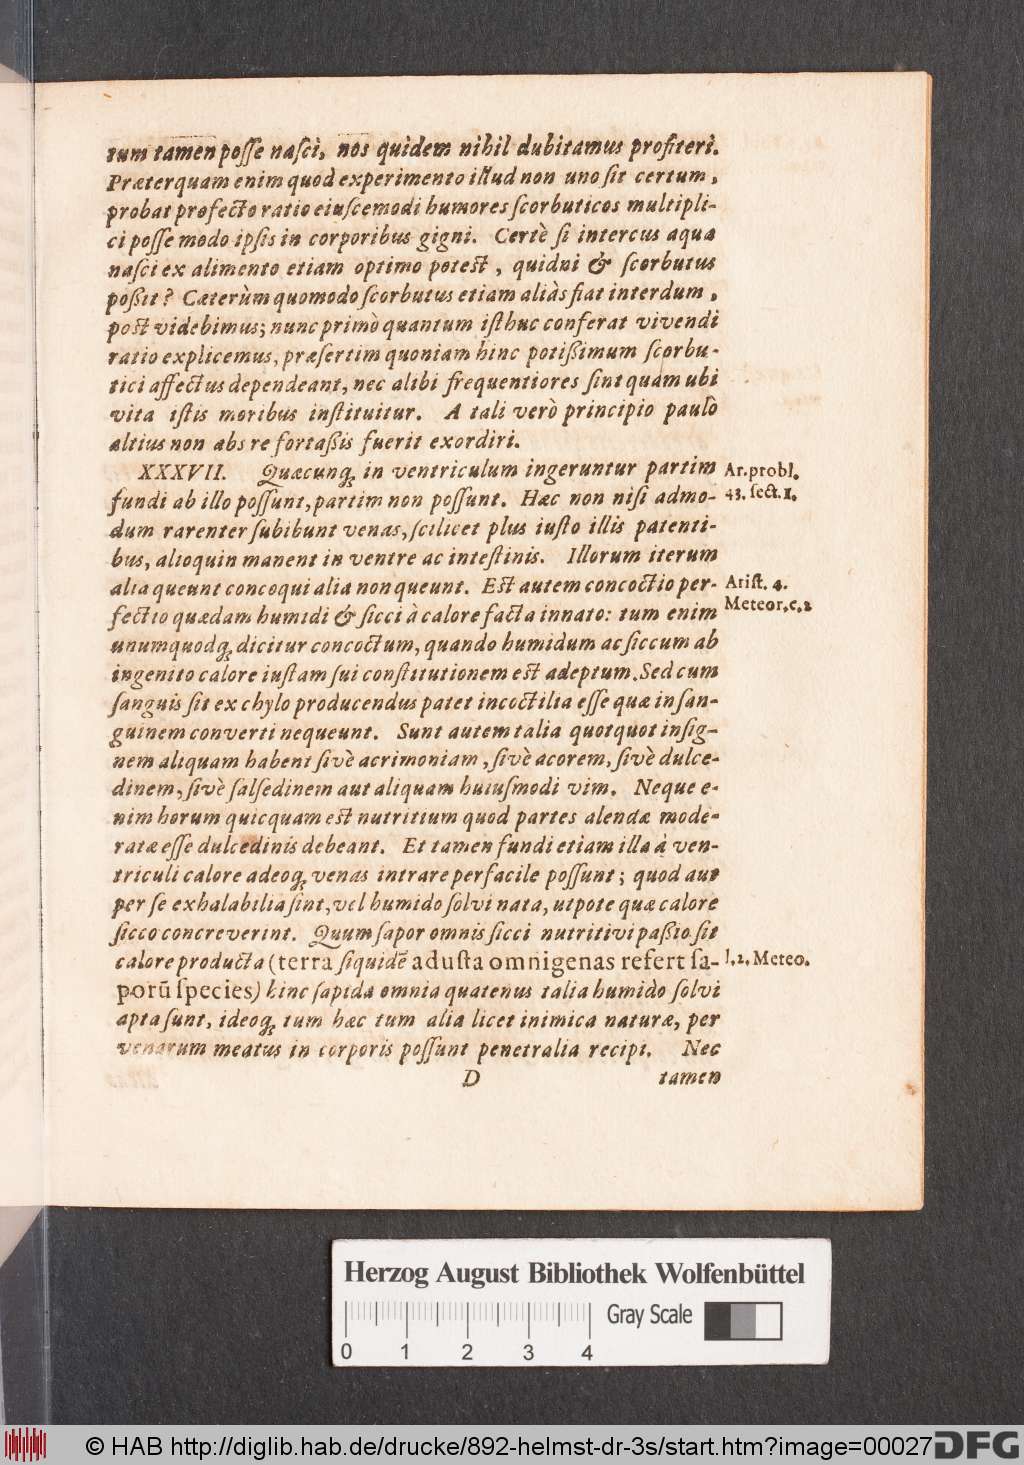 tum tamen posse nasci, nos quidem nihil dubitamus profiteri.
Præterquam enim quod experimento illud non uno sit certum,
probat profectò ratio eiuscemodi humores scorbuticos multipli-
ci posse modo ipsis in corporibus gigni. Certè si intercus aqua
nasci ex alimento etiam optimo potest, quidni & scorbutus
poßit? Cæterùm quomodo scorbutus etiam aliàs fiat interdum,
post videbimus; nunc primò quantum isthuc conferat vivendi
ratio explicemus, præsertim quoniam hinc potißimum scorbu-
tici affectus dependeant, nec alibi frequentiores sint quam ubi
vita istis moribus instituitur. A tali verò principio paulò
altius non abs re fortaßis fuerit exordiri.
XXXVII. Quæcunq; in ventriculum ingeruntur partim Ar. probl.
fundi ab illo possunt, partim non possunt. Hæc non nisi admo- 43. sect. 1.
dum rarenter subibunt venas, scilicet plus iusto illis patenti-
bus, alioquin manent in ventre ac intestinis. Illorum iterum
alia queunt concoqui alia non queunt. Est autem concoctio per- Arist. 4.
fectio quædam humidi & sicci à calore facta innato: tum enim Meteor. c. 2
unumquodq; dicitur concoctum, quando humidum ac siccum ab
ingenito calore iustam sui constitutionem est adeptum. Sed cum
sanguis sit ex chylo producendus patet incoctilia esse quæ in san-
guinem converti nequeunt. Sunt autem talia quotquot insig-
nem aliquam habent sivè acrimoniam, sivè acorem, sivè dulce-
dinem, sivè salsedinem aut aliquam huiusmodi vim. Neque e-
nim horum quicquam est nutritium quod partes alendæ mode-
ratæ esse dulcedinis debeant. Et tamen fundi etiam illa à ven-
triculi calore adeoq; venas intrare perfacile possunt; quod aut
per se exhalabilia sint, vel humido solvi nata, utpote quæ calore
sicco concreverint. Quum sapor omnis sicci nutritivi paßio sit
calore producta (terra siquidē adusta omnigenas refert sa- l. 2. Meteo.
porū species) hinc sapida omnia quatenus talia humido solvi
apta sunt, ideoq; tum hæc tum alia licet inimica naturæ, per
venarum meatus in corporis possunt penetralia recipi. Nec
D tamen
Herzog August Bibliothek Wolfenbüttel
Gray Scale
0 1 2 3 4
© HAB http://diglib.hab.de/drucke/892-helmst-dr-3s/start.htm?image=00027 DFG